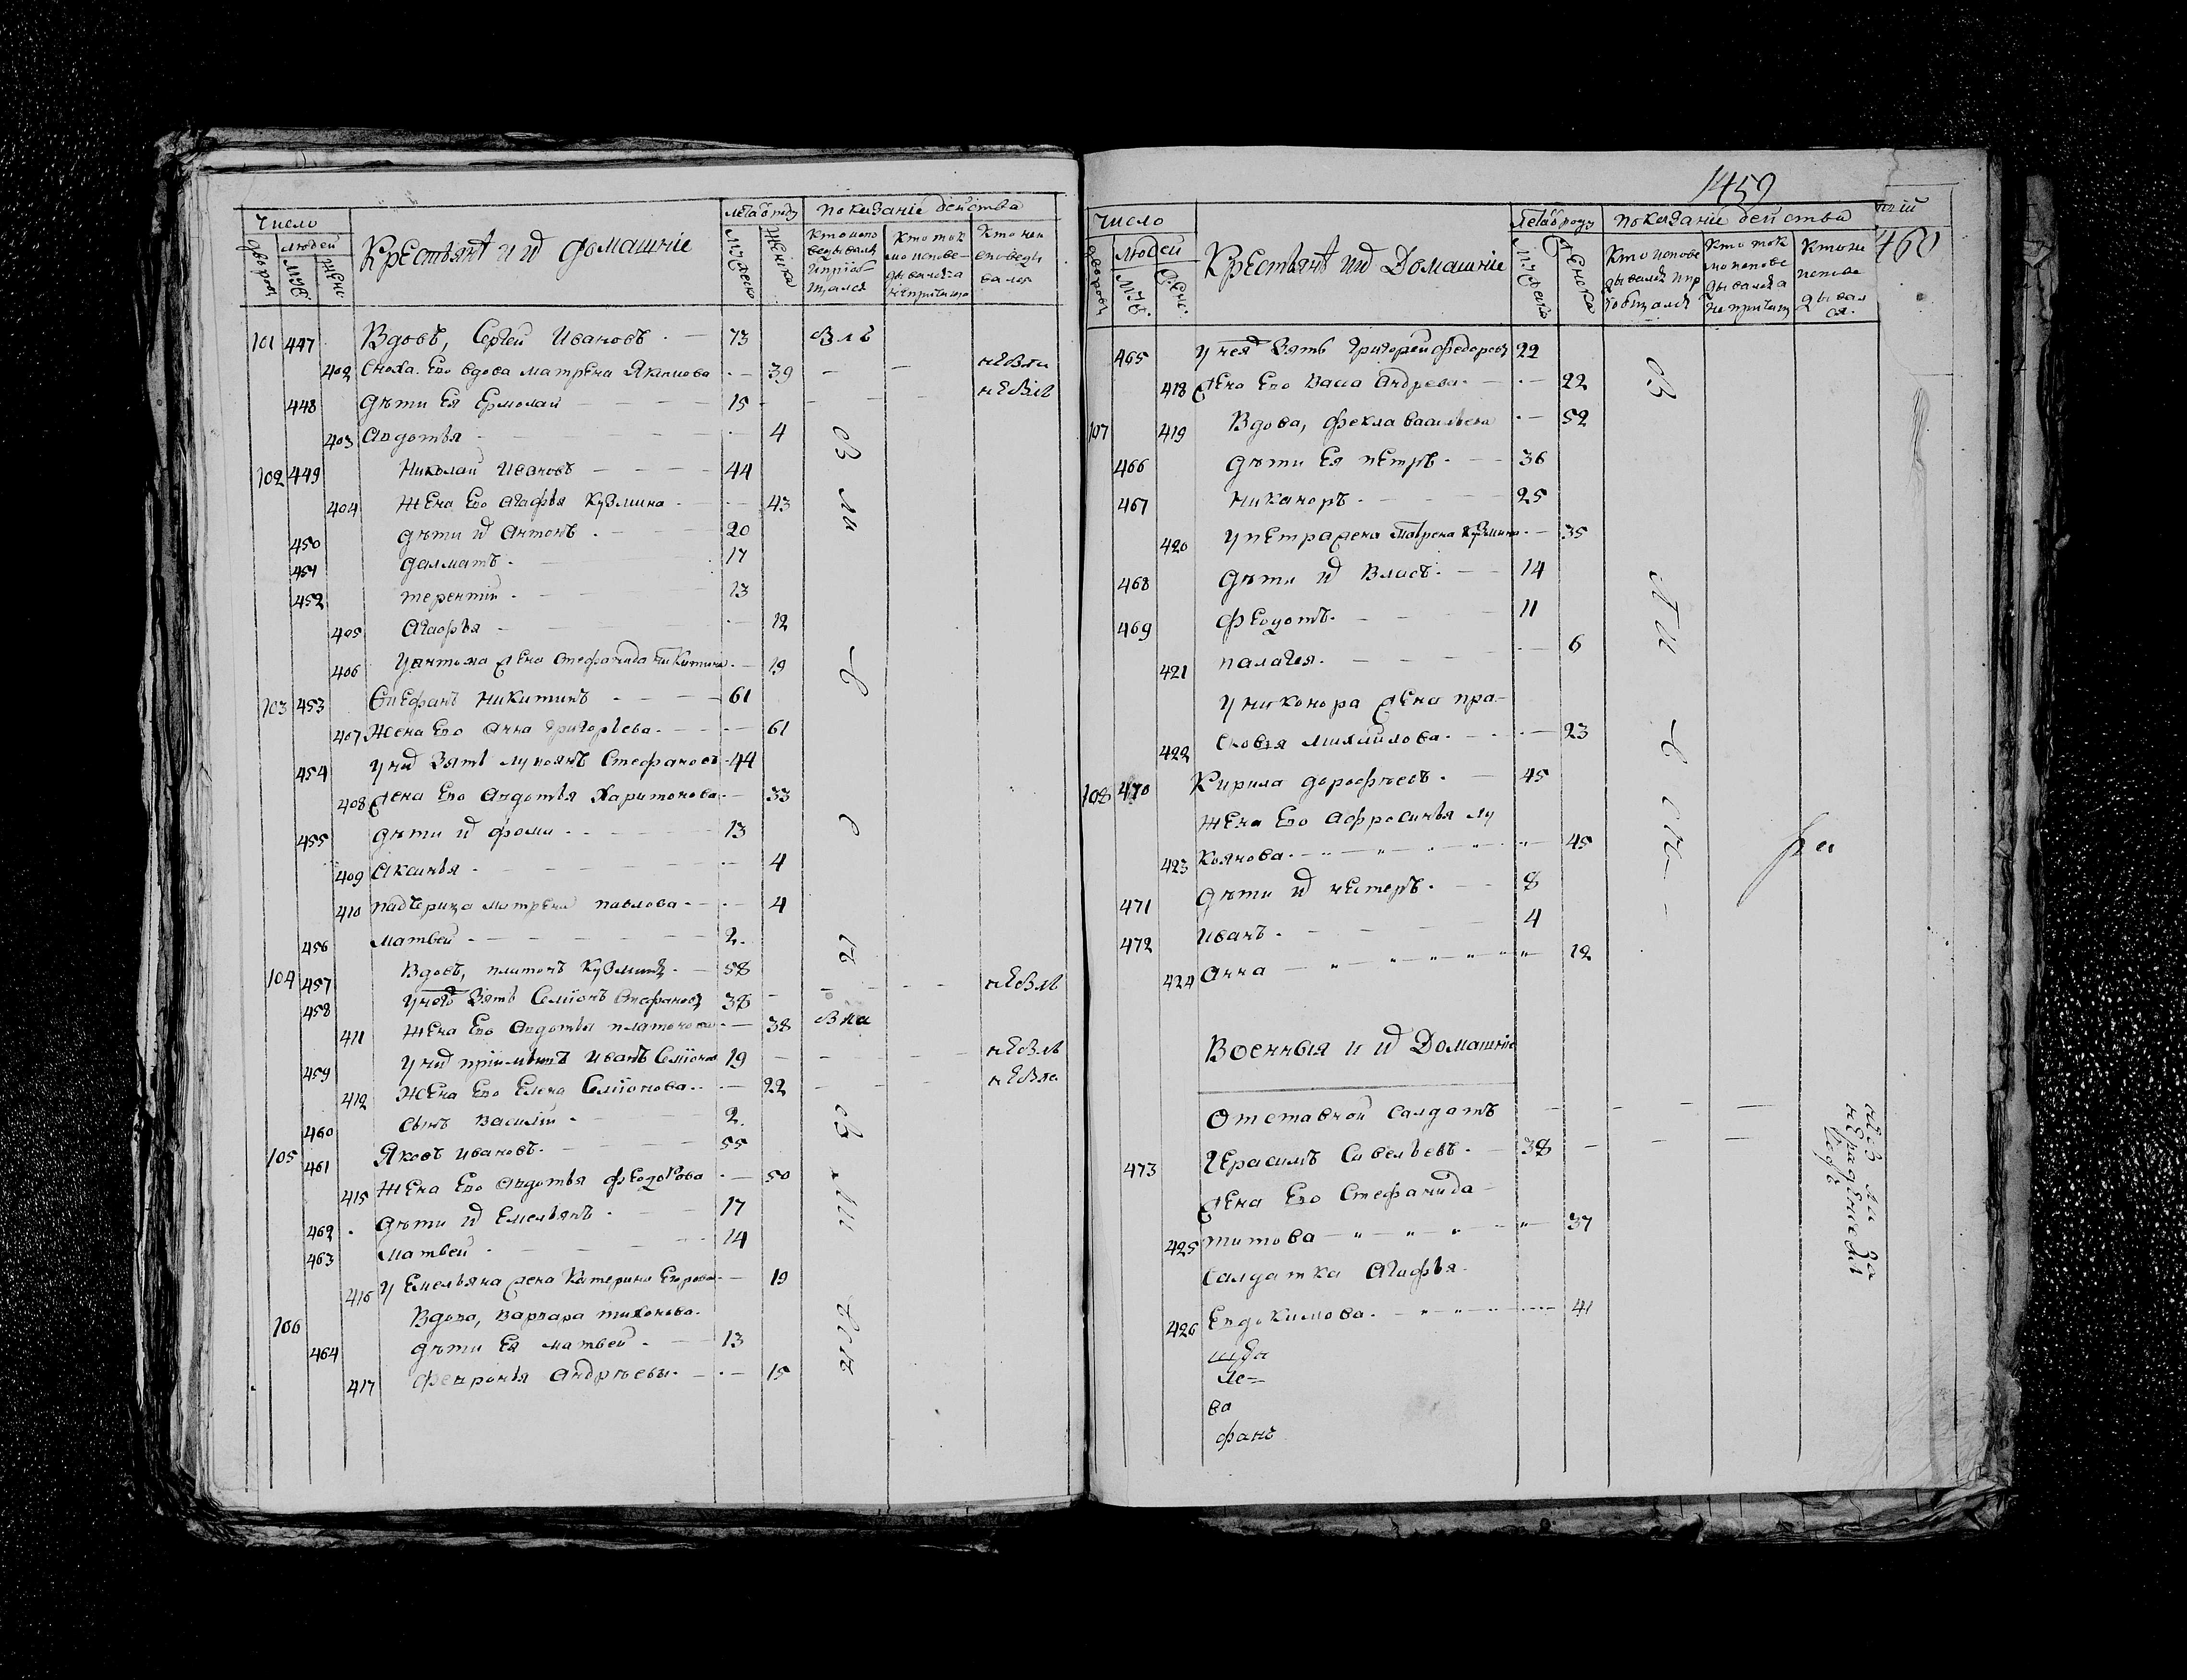 Число
Лета ѿ роду
показаніе действа
дворовъ
людей
муж
женс
Крестьянѣ и ихъ домашніе
мужеска
женска
кто испо
ведывалъ
и пріоб
щался
кто ток
мо испове-
дывался а
не причащ
кто неи
споведы
вался
101 447 Вдовъ, Сергей Ивановъ. — 73 Взлъ
402 Сноха. Его вдова матрена Якимова — 39 — — неВзла
448 дѣти Ея Ермолай — 15 — — — неВзлъ
403 Авдотья — 4
102 449 Николай Ивановъ — 44
404 Жена Его Агафья Кузмина — 43
450 дѣти ихъ Антонъ — 20
451 Далматъ — 17
452 терентій — 13
405 Агафья — 12
406 У антона жена Стефанида Никитина — 19
103 453 Стефанъ Никитинъ — 61
407 Жена Его Анна Григорьева — 61
454 У нихъ Зять лукоянъ Стефановъ 44
408 жена Его Авдотья Харитонова — 33
455 дѣти ихъ фома — 13
409 Аксинья — 4
410 падчерица матрена павлова — 4
456 матвей — 2.
104 457 Вдовъ, платонъ Кузминъ — 58
458 У него Зять Семіонъ Стефановъ 38 — — — неВзлъ
411 Жена Его Авдотья платонова — 38 взла
459 У нихъ пріимышъ Иванъ Семіоновъ 19 — — — неВзлъ
412 Жена Его Елена Семіонова — 22 — — неВзла
460 сынъ василій — 2.
105 461 Яковъ Ивановъ — 55
415 Жена Его Авдотья федорова — 50
462 дѣти ихъ Емельянъ — 17
463 матвей — 14
416 У Емельяна жена Катерина Егорова — 19
106 Вдова, варвара тихонова.
464 дѣти Ея матвей — 13
417 Февронья Андрѣевы — 15
1459
460
Число
Лета ѿ роду
показаніе действа
дворовъ
людей
муж.
женс.
Крестьянѣ ихъ Домашніе
мужеска
женска
кто испове
дывался и пр
іобщался
кто ток
мо испове
дывался а
не причащ
кто не
испове
дывал
ся.
465 У нея Зять Григорей федоровъ 22
418 жена Его Васса Андреева — 22
107 419 Вдова, фекла васильева — 52
466 дѣти Ея петръ — 36
467 Никаноръ — 25
420 У петра жена матрена Кузмина — 35
468 дѣти ихъ Власъ — 14
469 федотъ — 11
421 палагея — 6
У никонора жена пра-
422 сковья михайлова — 23
108 470 Кирила дорофѣевъ — 45
Жена Его Афросинья лу
423 коянова — 45
471 дѣти ихъ нестеръ — 8
472 Иванъ — 4
424 Анна — 12
Военныя и ихъ Домашніе
Отставной салдатъ
473 Герасимъ Савельевъ — 38 — — —
жена Его Стефанида
425 титова — 37
салдатка Агафья
426 Евдокимова — 41
Ле-
ва
фанъ